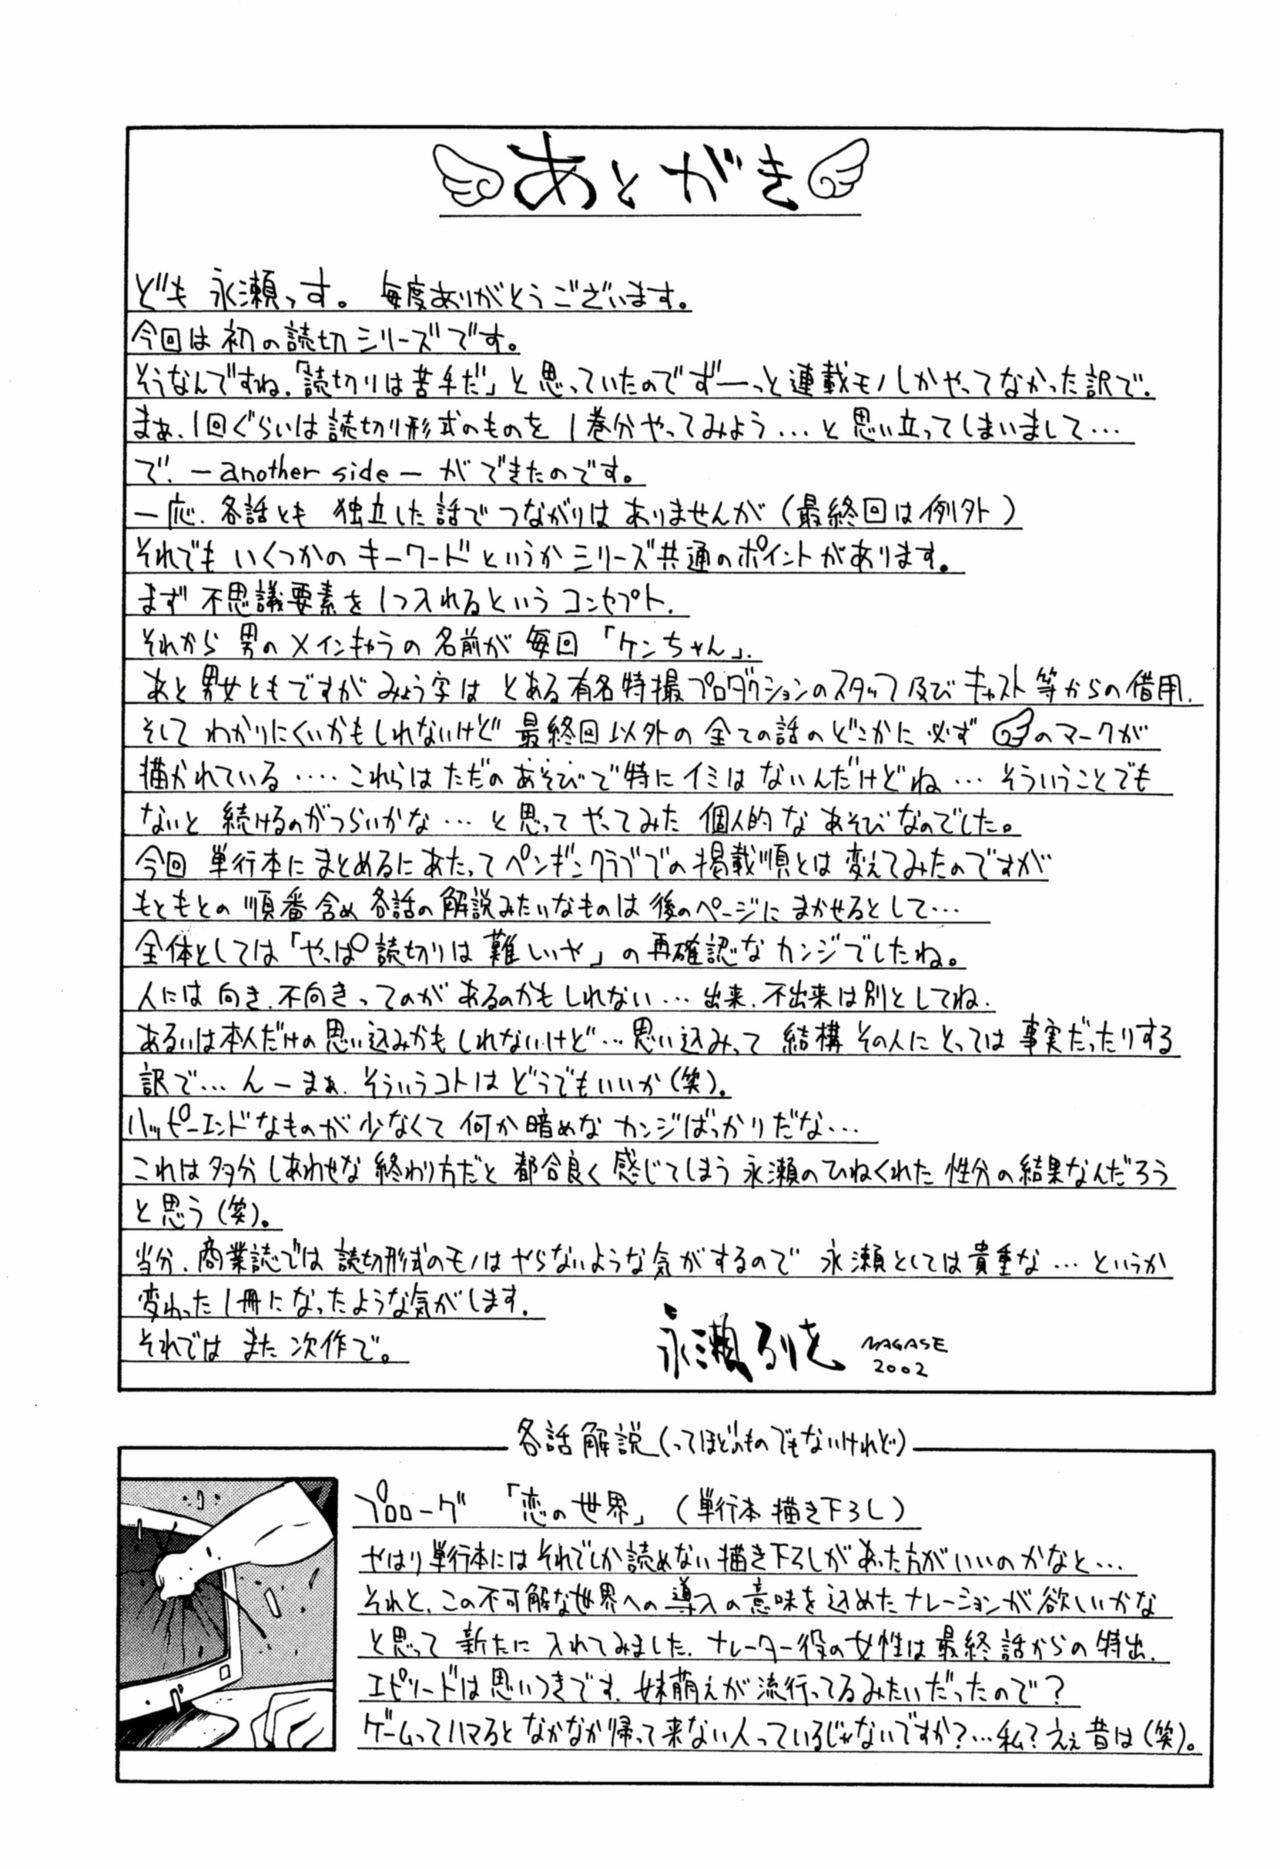 あとがき
ども 永瀬っす。 毎度ありがとうございます。
今回は初の読切シリーズです。
そうなんですね、「読切りは苦手だ」と思っていたのでずーっと連載モノしかやってなかった訳で。
まぁ、1回ぐらいは読切り形式のものを1巻分やってみよう…と思い立ってしまいまして…
で、―another side―ができたのです。
一応、各話とも 独立した話でつながりはありませんが(最終回は例外)
それでもいくつかのキーワードというかシリーズ共通のポイントがあります。
まず不思議要素を1つ入れるというコンセプト、
それから男のメインキャラの名前が毎回「ケンちゃん」、
あと男女ともですがみょう字はとある有名特撮プロダクションのスタッフ及びキャスト等からの借用、
そしてわかりにくいかもしれないけど最終回以外の全ての話のどこかに必ず のマークが
描かれている……これらはただのあそびで特にイミはないんだけどね…そういうことでも
ないと続けるのがつらいかな…と思ってやってみた個人的なあそびなのでした。
今回 単行本にまとめるにあたってペンギンクラブでの掲載順とは変えてみたのですが
もともとの順番含め各話の解説みたいなものは後のページにまかせるとして…
全体としては「やっぱ読切りは難しいや」の再確認なカンジでしたね。
人には向き、不向きってのがあるのかもしれない…出来、不出来は別としてね、
あるいは本人だけの思い込みかもしれないけど…思い込みって結構その人にとっては事実だったりする
訳で…んーまぁ、そういうコトはどうでもいいか(笑)。
ハッピーエンドなものが少なくて何か暗めなカンジばっかりだな…
これは多分しあわせな終わり方だと都合良く感じてしまう永瀬のひねくれた性分の結果なんだろう
と思う(笑)。
当分、商業誌では読切形式のモノはやらないような気がするので 永瀬としては貴重な…というか
変わった1冊になったような気がします。
それではまた次作で。
永瀬るりを NAGASE
2002
各話解説(ってほどのものでもないけれど)
プロローグ 「恋の世界」(単行本描き下ろし)
やはり単行本にはそれでしか読めない描き下ろしがあった方がいいのかなと…
それと、この不可解な世界への導入の意味を込めたナレーションが欲しいかな
と思って新たに入れてみました、ナレーター役の女性は最終話からの特出、
エピソードは思いつきです、妹萌えが流行ってるみたいだったので?
ゲームってハマるとなかなか帰って来ない人っているじゃないですか?…私?えぇ昔は(笑)。